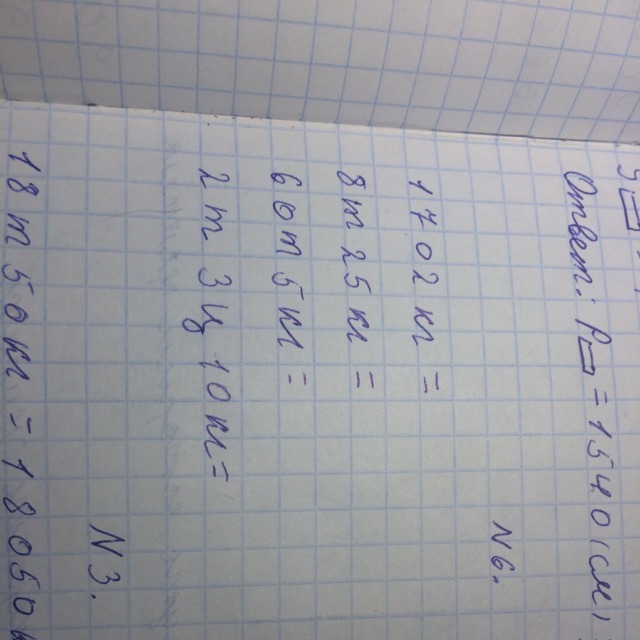 Ответ: P▭ = 1540 (см)
N6.
1702 кг =
8 т 25 кг =
60 т 5 кг =
2 т 3 ц 10 кг =
N3.
18 т 50 кг = 18050